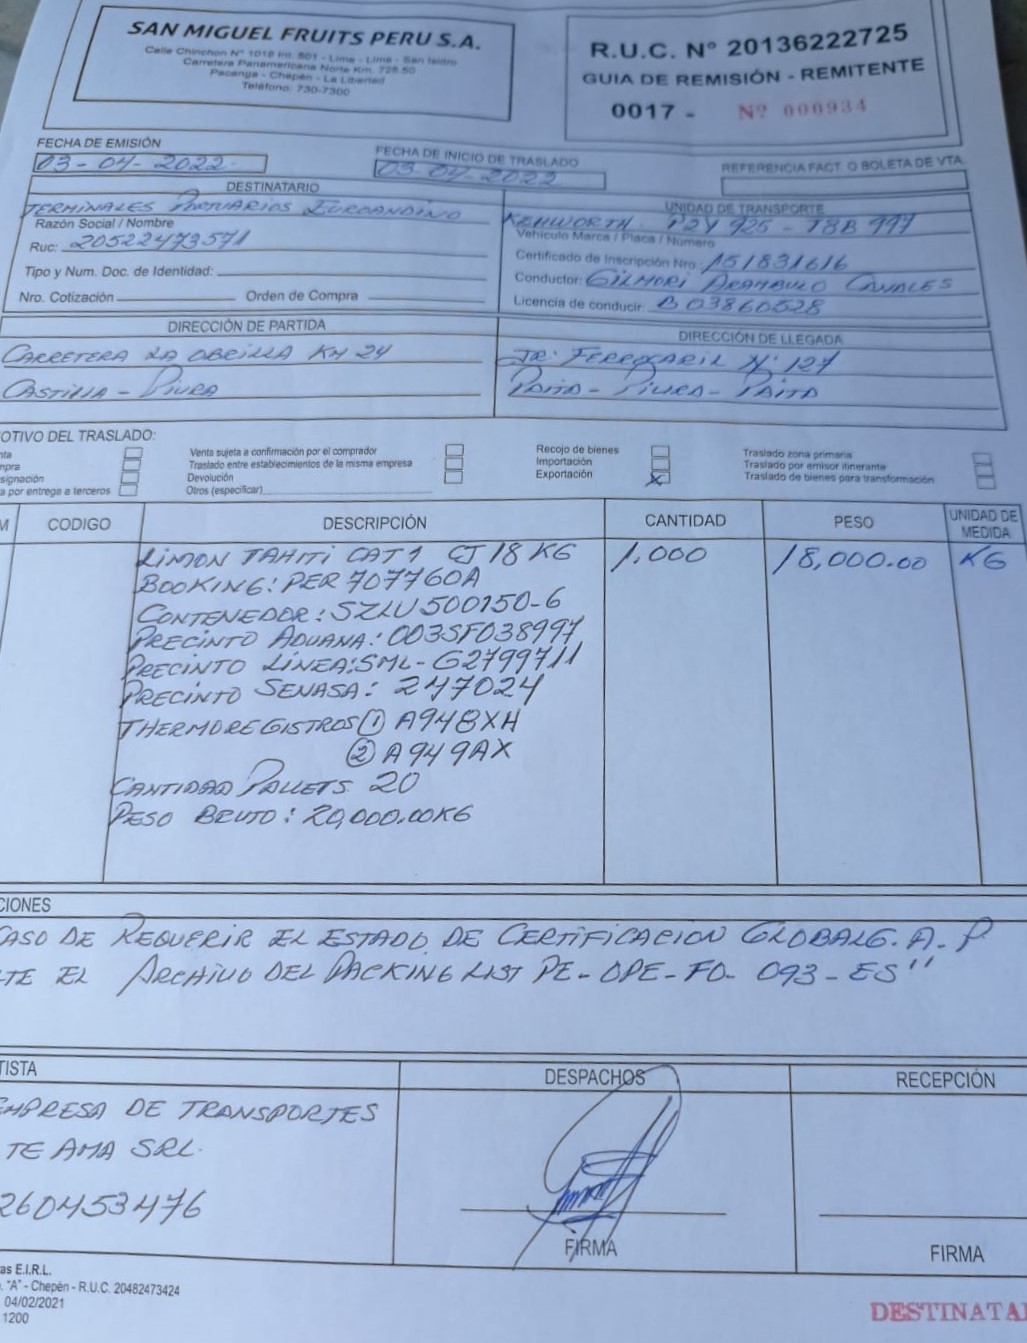 SAN MIGUEL FRUITS PERU S.A.
Calle Chinchon N° 1018 Int. 501 - Lima - Lima - San Isidro
Carretera Panamericana Norte Km. 728.50
Pacanga - Chepén - La Libertad
Teléfono: 730-7300
R.U.C. N° 20136222725
GUIA DE REMISIÓN - REMITENTE
0017 - Nº 000934
FECHA DE EMISIÓN
03-04-2022
FECHA DE INICIO DE TRASLADO
03-04-2022
REFERENCIA FACT. O BOLETA DE VTA.
DESTINATARIO
TERMINALES PORTUARIOS EUROANDINO
Razón Social / Nombre
Ruc: 20522473571
Tipo y Num. Doc. de Identidad:
Nro. Cotización Orden de Compra
UNIDAD DE TRANSPORTE
KENWORTH P2Y 925 - T8B 997
Vehículo Marca / Placa / Número
Certificado de Inscripción Nro. 151831616
Conductor: GILMORI ARAMBULO CANALES
Licencia de conducir: B03860528
DIRECCIÓN DE PARTIDA
CARRETERA LA OBRILLA KM 24
CASTILLA - PIURA
DIRECCIÓN DE LLEGADA
JR: FERROCARIL Nº 127
PAITA - PIURA - PAITA
OTIVO DEL TRASLADO:
nta
mpra
signación
a por entrega a terceros
Venta sujeta a confirmación por el comprador
Traslado entre establecimientos de la misma empresa
Devolución
Otros (especificar)
Recojo de bienes
Importación
Exportación X
Traslado zona primaria
Traslado por emisor itinerante
Traslado de bienes para transformación
M CODIGO DESCRIPCIÓN CANTIDAD PESO UNIDAD DE MEDIDA
LIMON TAHITI CAT 1 CJ 18 KG 1,000 18,000.00 KG
BOOKING: PER 707760A
CONTENEDOR: SZLU 500150-6
PRECINTO ADUANA: 003SF038997
PRECINTO LÍNEA: SML-G2799711
PRECINTO SENASA: 247024
THERMOREGISTROS ① A948XH
② A949AX
CANTIDAD PALLETS 20
PESO BRUTO: 20,000.00KG
CIONES
CASO DE REQUERIR EL ESTADO DE CERTIFICACION GLOBALG.A.P
TE EL ARCHIVO DEL PACKING LIST PE-OPE-FO-093-ES"
TISTA
EMPRESA DE TRANSPORTES
TE AMA SRL.
260453476
DESPACHOS
FIRMA
RECEPCIÓN
FIRMA
as E.I.R.L.
. "A" - Chepén - R.U.C. 20482473424
. 04/02/2021
1200
DESTINATA